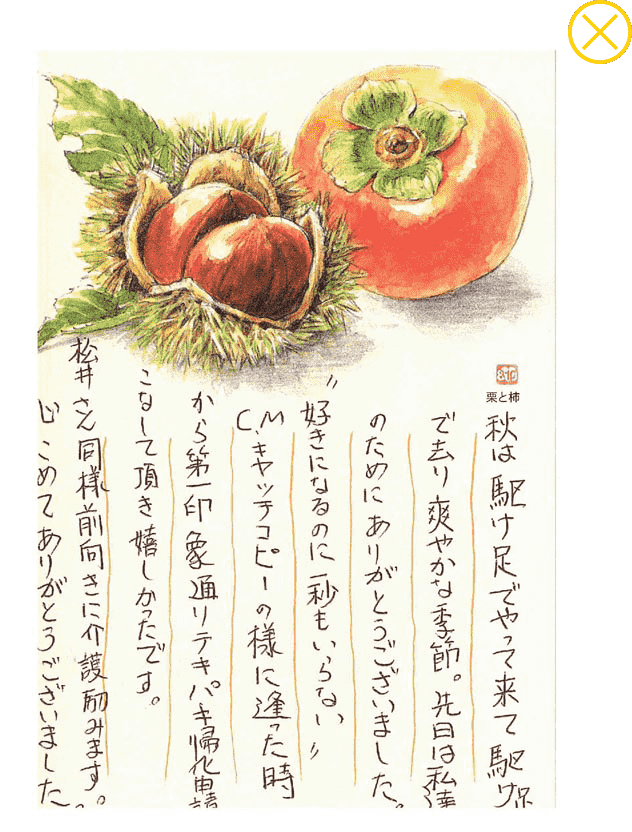 栗と柿
秋は駆け足でやって来て駆け足
で去り爽やかな季節。先日は私達
のためにありがとうございました。
〝好きになるのに一秒もいらない〟
C.M キャッチコピーの様に逢った時
から第一印象通りテキパキ帰化申請
こなして頂き嬉しかったです。
松井さん同様前向きに介護励みます。
心こめてありがとうございました。